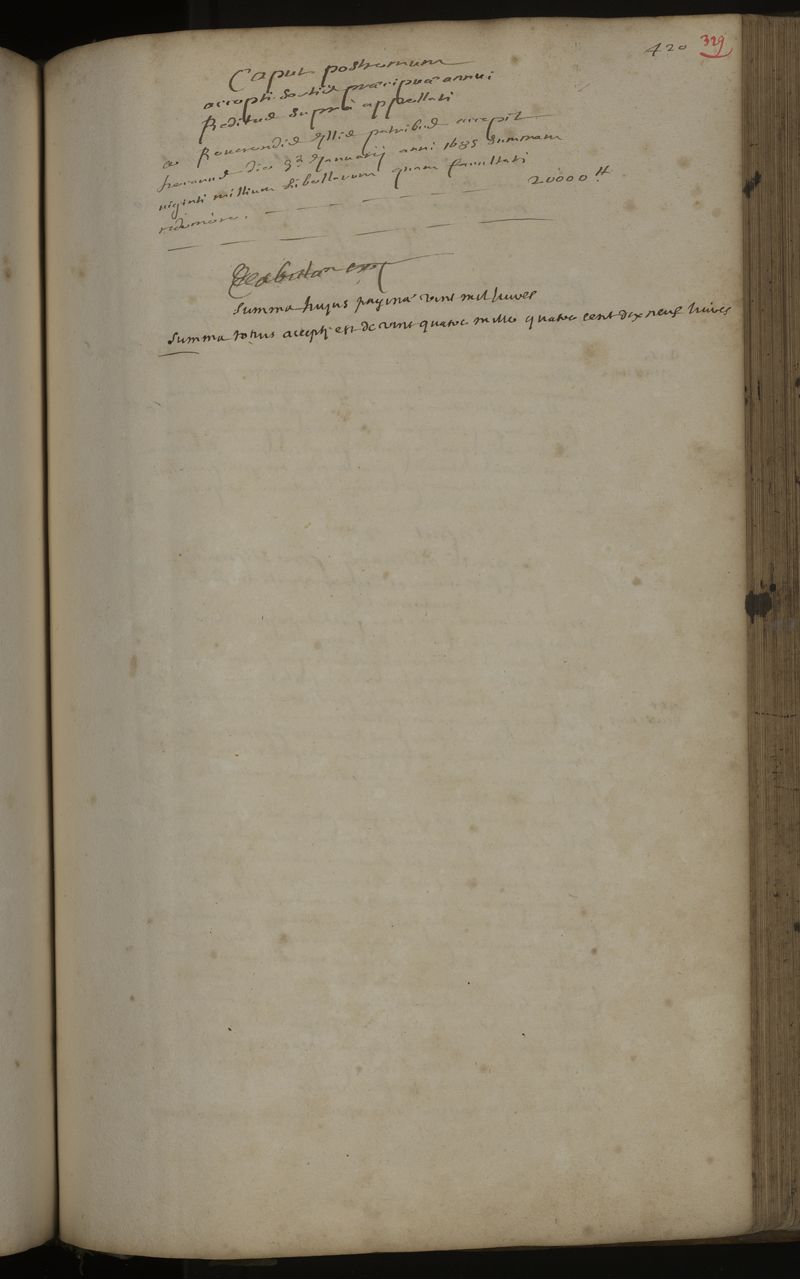 420 329
Caput postremum
accepti sortis præcipuæ annui
Reditus supra appellati
a Reuerendis Illis patribus accepit
die 9a Januarij anni 1695 summam
uiginti millium libellarum quam facultati
20000  tt
Summa hujus paginæ vint mil livres
Summa totius accepti est de vint quatre mille quatre cent dix neuf livres